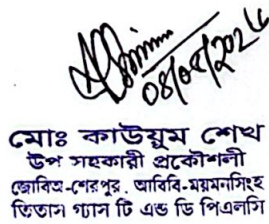 ০৪/০৫/২০২৬
মোঃ কাউয়ুম শেখ
উপ সহকারী প্রকৌশলী
জোবিঅ-শেরপুর, আবিবি-ময়মনসিংহ
তিতাস গ্যাস টি এন্ড ডি পিএলসি